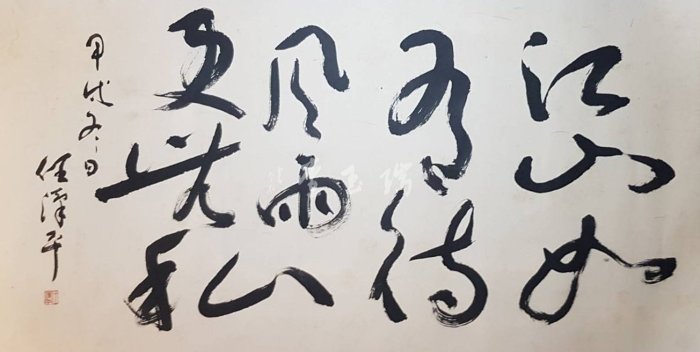 江山如
有待
风雨
更无私
甲戌冬日
任漢平